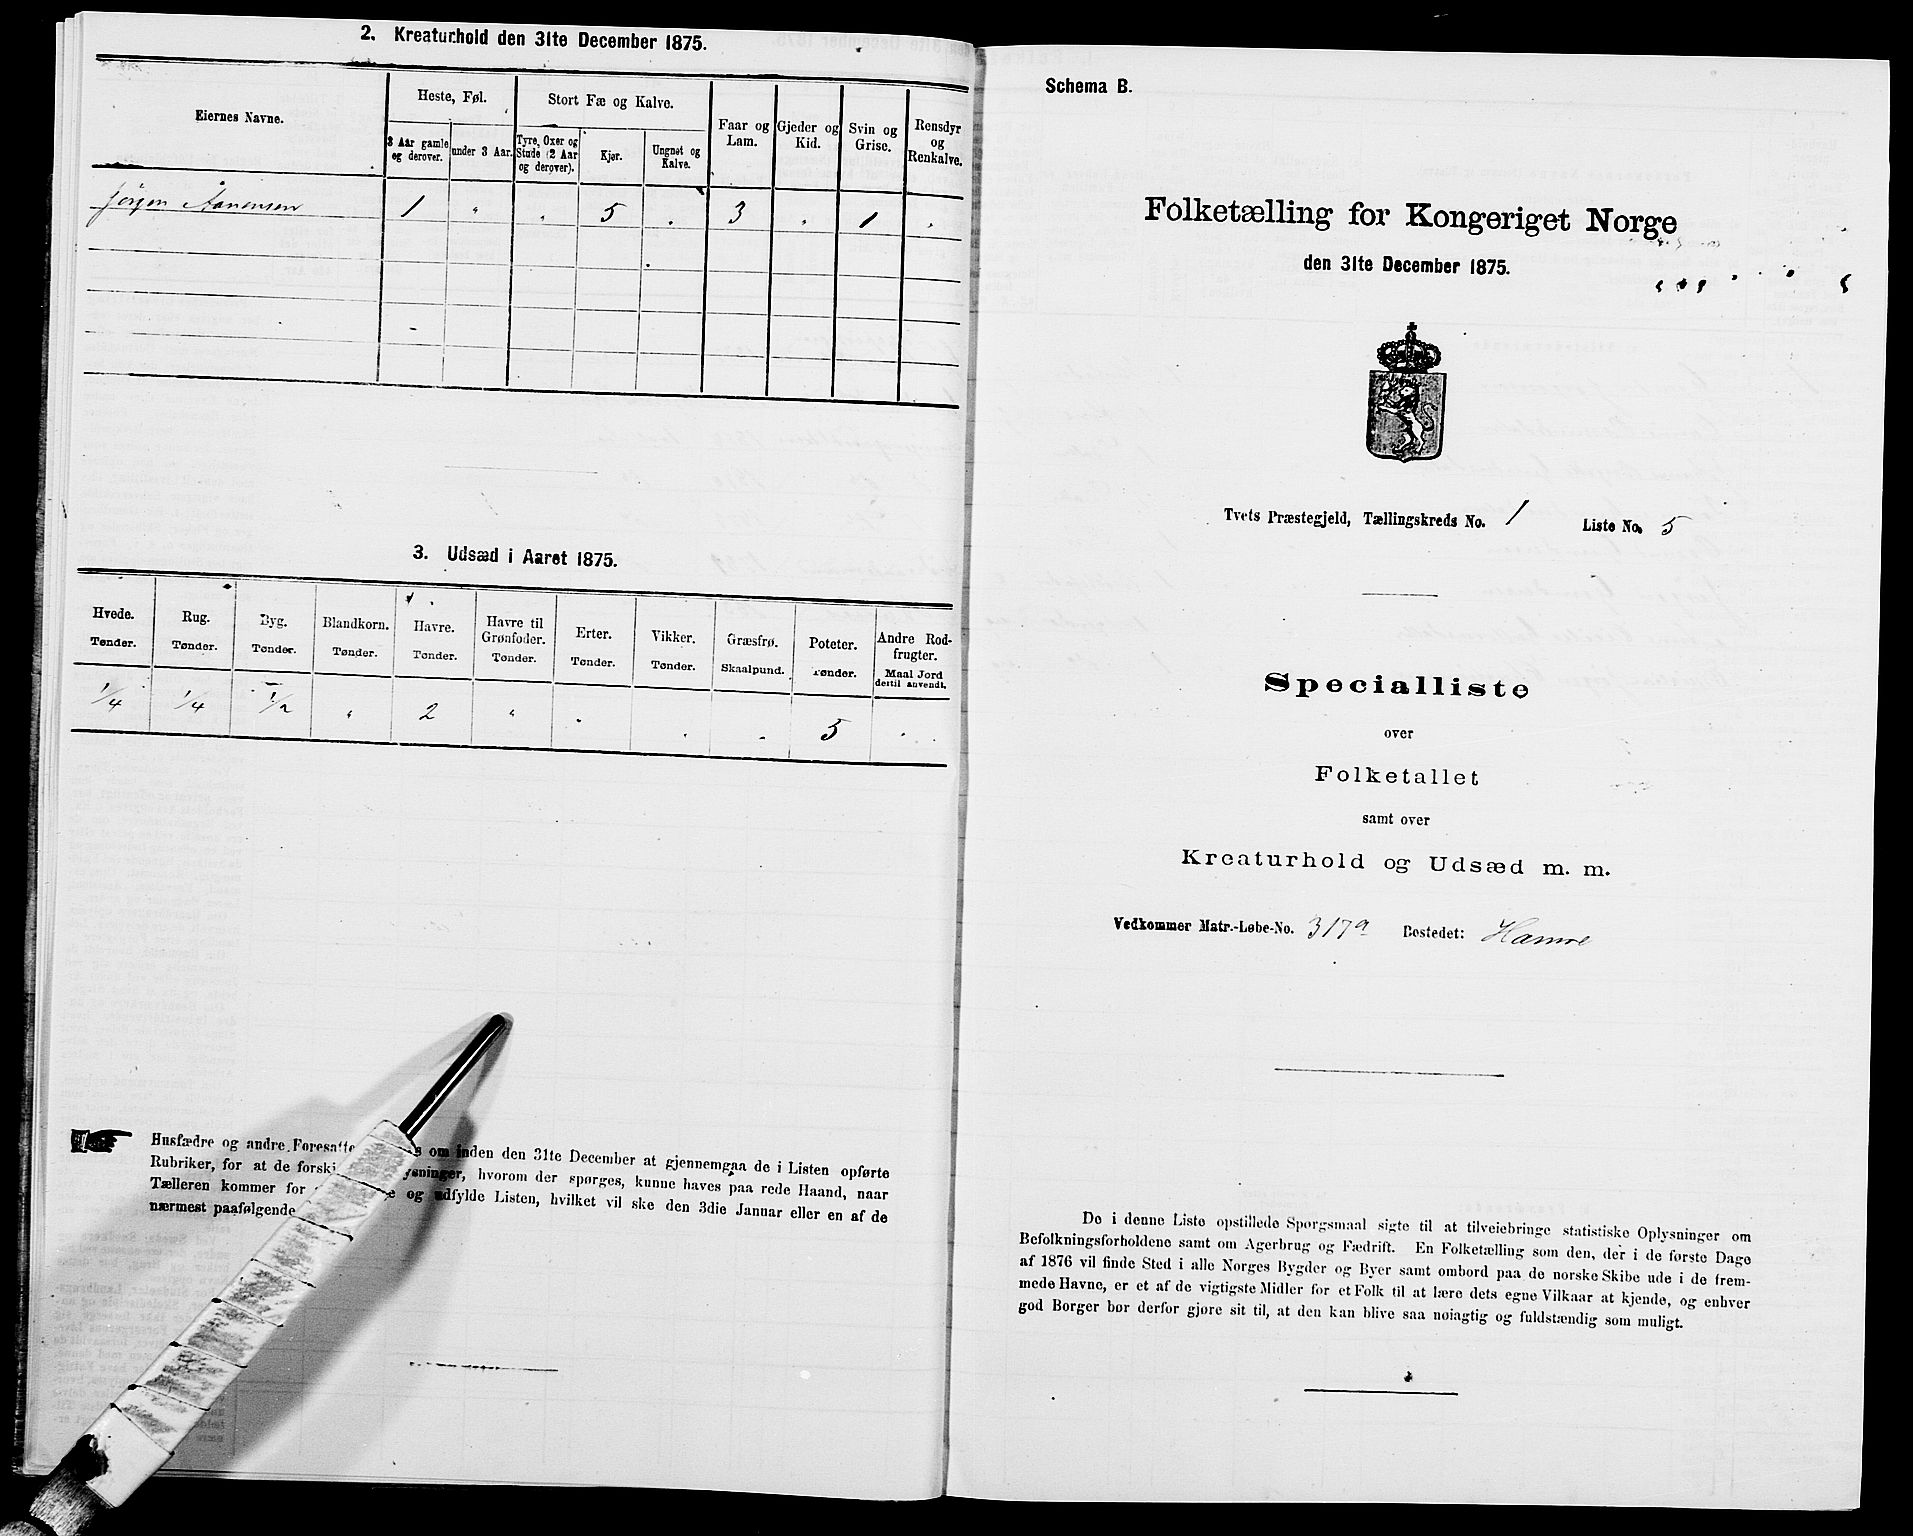 2. Kreaturhold den 31te December 1875.
Eiernes Navne.
Heste, Føl.
Stort Fæ og Kalve.
3 Aar gamle og derover.
under 3 Aar.
Tyre, Oxer og Stude (2 Aar og derover).
Kjør.
Ungnøt og Kalve.
Faar og Lam.
Gjeder og Kid.
Svin og Grise.
Rensdyr og Renkalve.
Jörgen Aanensen 1 " " 5 . 3 . 1 .
3. Udsæd i Aaret 1875.
Hvede. Rug. Byg. Blandkorn. Havre. Havre til Grønfoder. Erter. Vikker. Græsfrø. Poteter. Andre Rodfrugter.
Tønder. Tønder. Tønder. Tønder. Tønder. Tønder. Tønder. Tønder. Skaalpund. Tønder. Maal Jord dertil anvendt.
1/4 1/4 1/2 " 2 " . . . 5 .
Husfædre og andre Foresatte om inden den 31te December at gjennemgaa de i Listen opførte
Rubriker, for at de hvorom der spørges, kunne haves paa rede Haand, naar
Tælleren kommer for og udfylde Listen, hvilket vil ske den 3die Januar eller en af de
nærmest paafølgende
Schema B.
Folketælling for Kongeriget Norge
den 31te December 1875.
Tvets Præstegjeld, Tællingskreds No. 1 Liste No. 5
Specialliste
over
Folketallet
samt over
Kreaturhold og Udsæd m. m.
Vedkommer Matr.-Løbe-No. 317a Bostedet: Hamre
De i denne Liste opstillede Spørgsmaal sigte til at tilveiebringe statistiske Oplysninger om
Befolkningsforholdene samt om Agerbrug og Fædrift. En Folketælling som den, der i de første Dage
af 1876 vil finde Sted i alle Norges Bygder og Byer samt ombord paa de norske Skibe ude i de frem-
mede Havne, er et af de vigtigste Midler for et Folk til at lære dets egne Vilkaar at kjende, og enhver
god Borger bør derfor gjøre sit til, at den kan blive saa nøiagtig og fuldstændig som muligt.